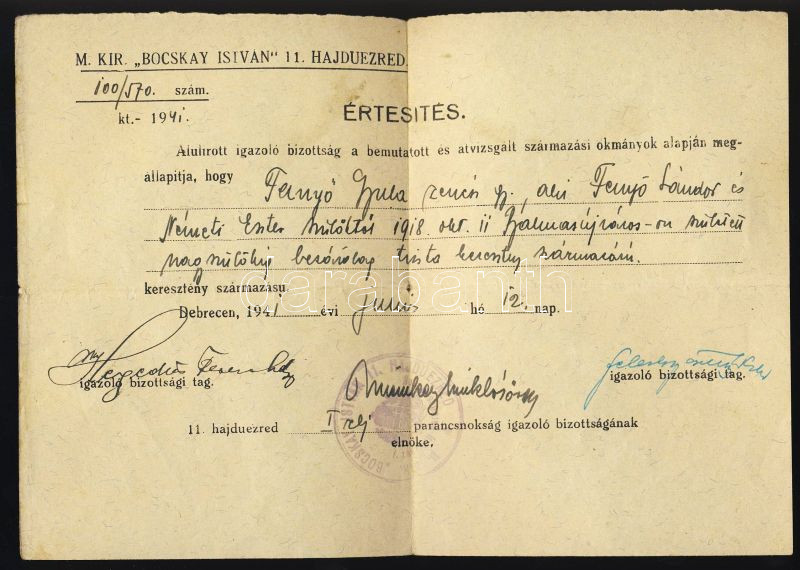 M. KIR. „BOCSKAY ISTVÁN" 11. HAJDUEZRED.
100/570. szám.
kt.- 1941.
ÉRTESITÉS.
Alulirott igazoló bizottság a bemutatott és átvizsgált származási okmányok alapján meg-
állapitja, hogy Fenyő Gyula, aki Fenyő Sándor és
Németi Eszter szülőktől 1918. okt. 11 Balmazújváros-on született
nagyszülőkig bezárólag tiszta keresztény származású.
keresztény származásu.
Debrecen, 1941 évi junius hó 12. nap.
darabanth
Hegedüs Ferenc
igazoló bizottsági tag.
igazoló bizottsági tag.
11. hajduezred I. parancsnokság igazoló bizottságának
elnöke.